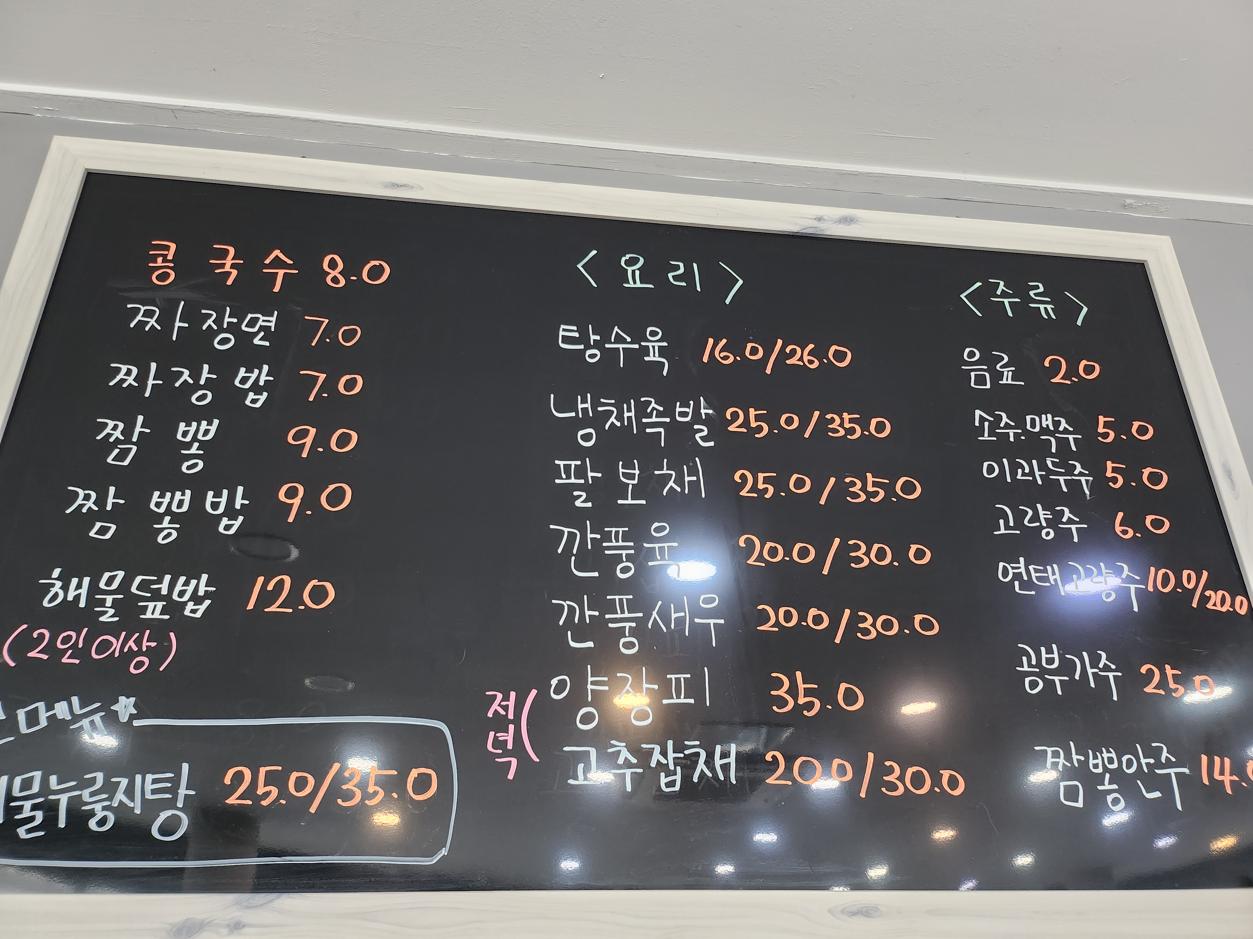 콩국수 8.0
짜장면 7.0
짜장밥 7.0
짬뽕 9.0
짬뽕밥 9.0
해물덮밥 12.0
(2인이상)
메뉴☆
물누룽지탕 25.0/35.0
<요리>
탕수육 16.0/26.0
냉채족발 25.0/35.0
팔보채 25.0/35.0
깐풍육 20.0/30.0
깐풍새우 20.0/30.0
저녁(
양장피 35.0
고추잡채 20.0/30.0
<주류>
음료 2.0
소주.맥주 5.0
이과두주 5.0
고량주 6.0
연태고량주 10.0/20.0
공부가주 25.0
짬뽕안주 14.